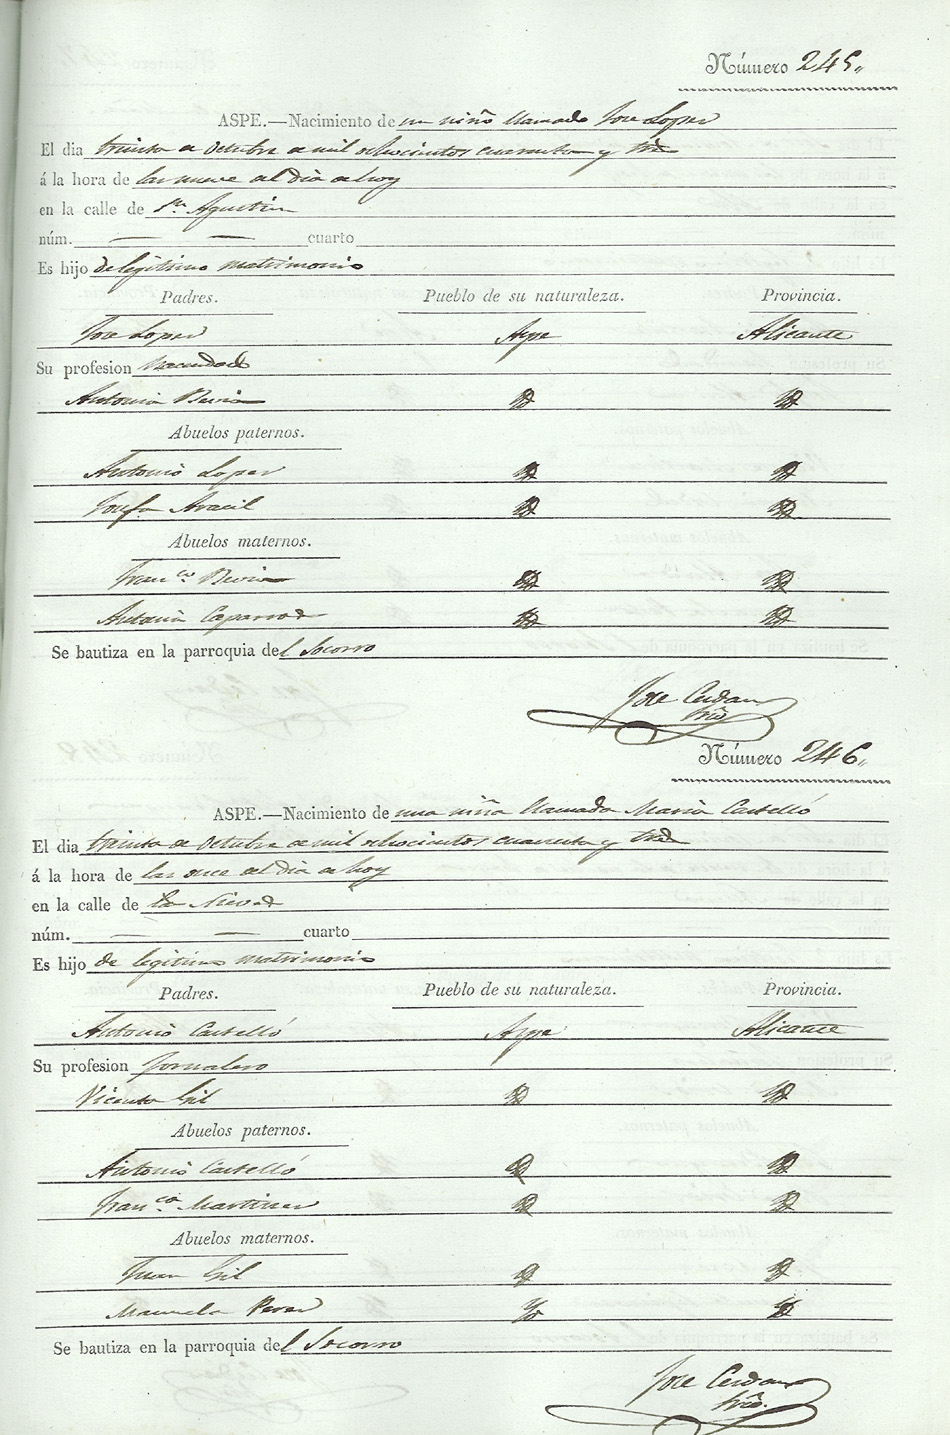 Número 245,,
ASPE.—Nacimiento de un niño llamado Jose Lopez
El dia treinta de Octubre de mil ochocientos cuarenta y tres
á la hora de las nueve del dia de hoy
en la calle de Sn. Agustin
núm. — — cuarto
Es hijo de legitimo matrimonio
Padres. Pueblo de su naturaleza. Provincia.
Jose Lopez Aspe Alicante
Su profesion
Antonia Id Id
Abuelos paternos.
Antonio Lopez Id Id
Josefa Aracil Id Id
Abuelos maternos.
Franco. Id Id
Antonia Caparros Id Id
Se bautiza en la parroquia del Socorro
Jose Cerdan
Srio
Número 246,,
ASPE.—Nacimiento de una niña llamada Maria Castelló
El dia treinta de Octubre de mil ochocientos cuarenta y tres
á la hora de las once del dia de hoy
en la calle de la Nieves
núm. — — cuarto
Es hijo de legitimo matrimonio
Padres. Pueblo de su naturaleza. Provincia.
Antonio Castelló Aspe Alicante
Su profesion Jornalero
Vicenta Gil Id Id
Abuelos paternos.
Antonio Castelló Id Id
Franca. Martinez Id Id
Abuelos maternos.
Juan Gil Id Id
Manuela Perez Id
Se bautiza en la parroquia del Socorro
Jose Cerdan
Srio.